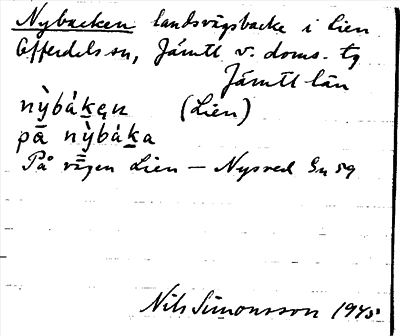 Nybacken landsvägsbacke i Lien
Offerdals sn, Jämtl. v. doms. tg
Jämtl län
nỳbákęn (Lien)
på nỳbáka
På vägen Lien — Nysved Gn 59
Nils Simonsson 1945